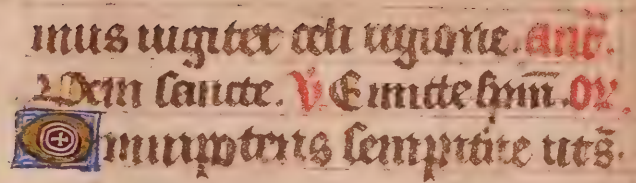 mus iugiter celi regione. Antẽ.
Veni sancte. ℣ Emitte sp̃m̃. Or.
Omnipotens sempit̃ne